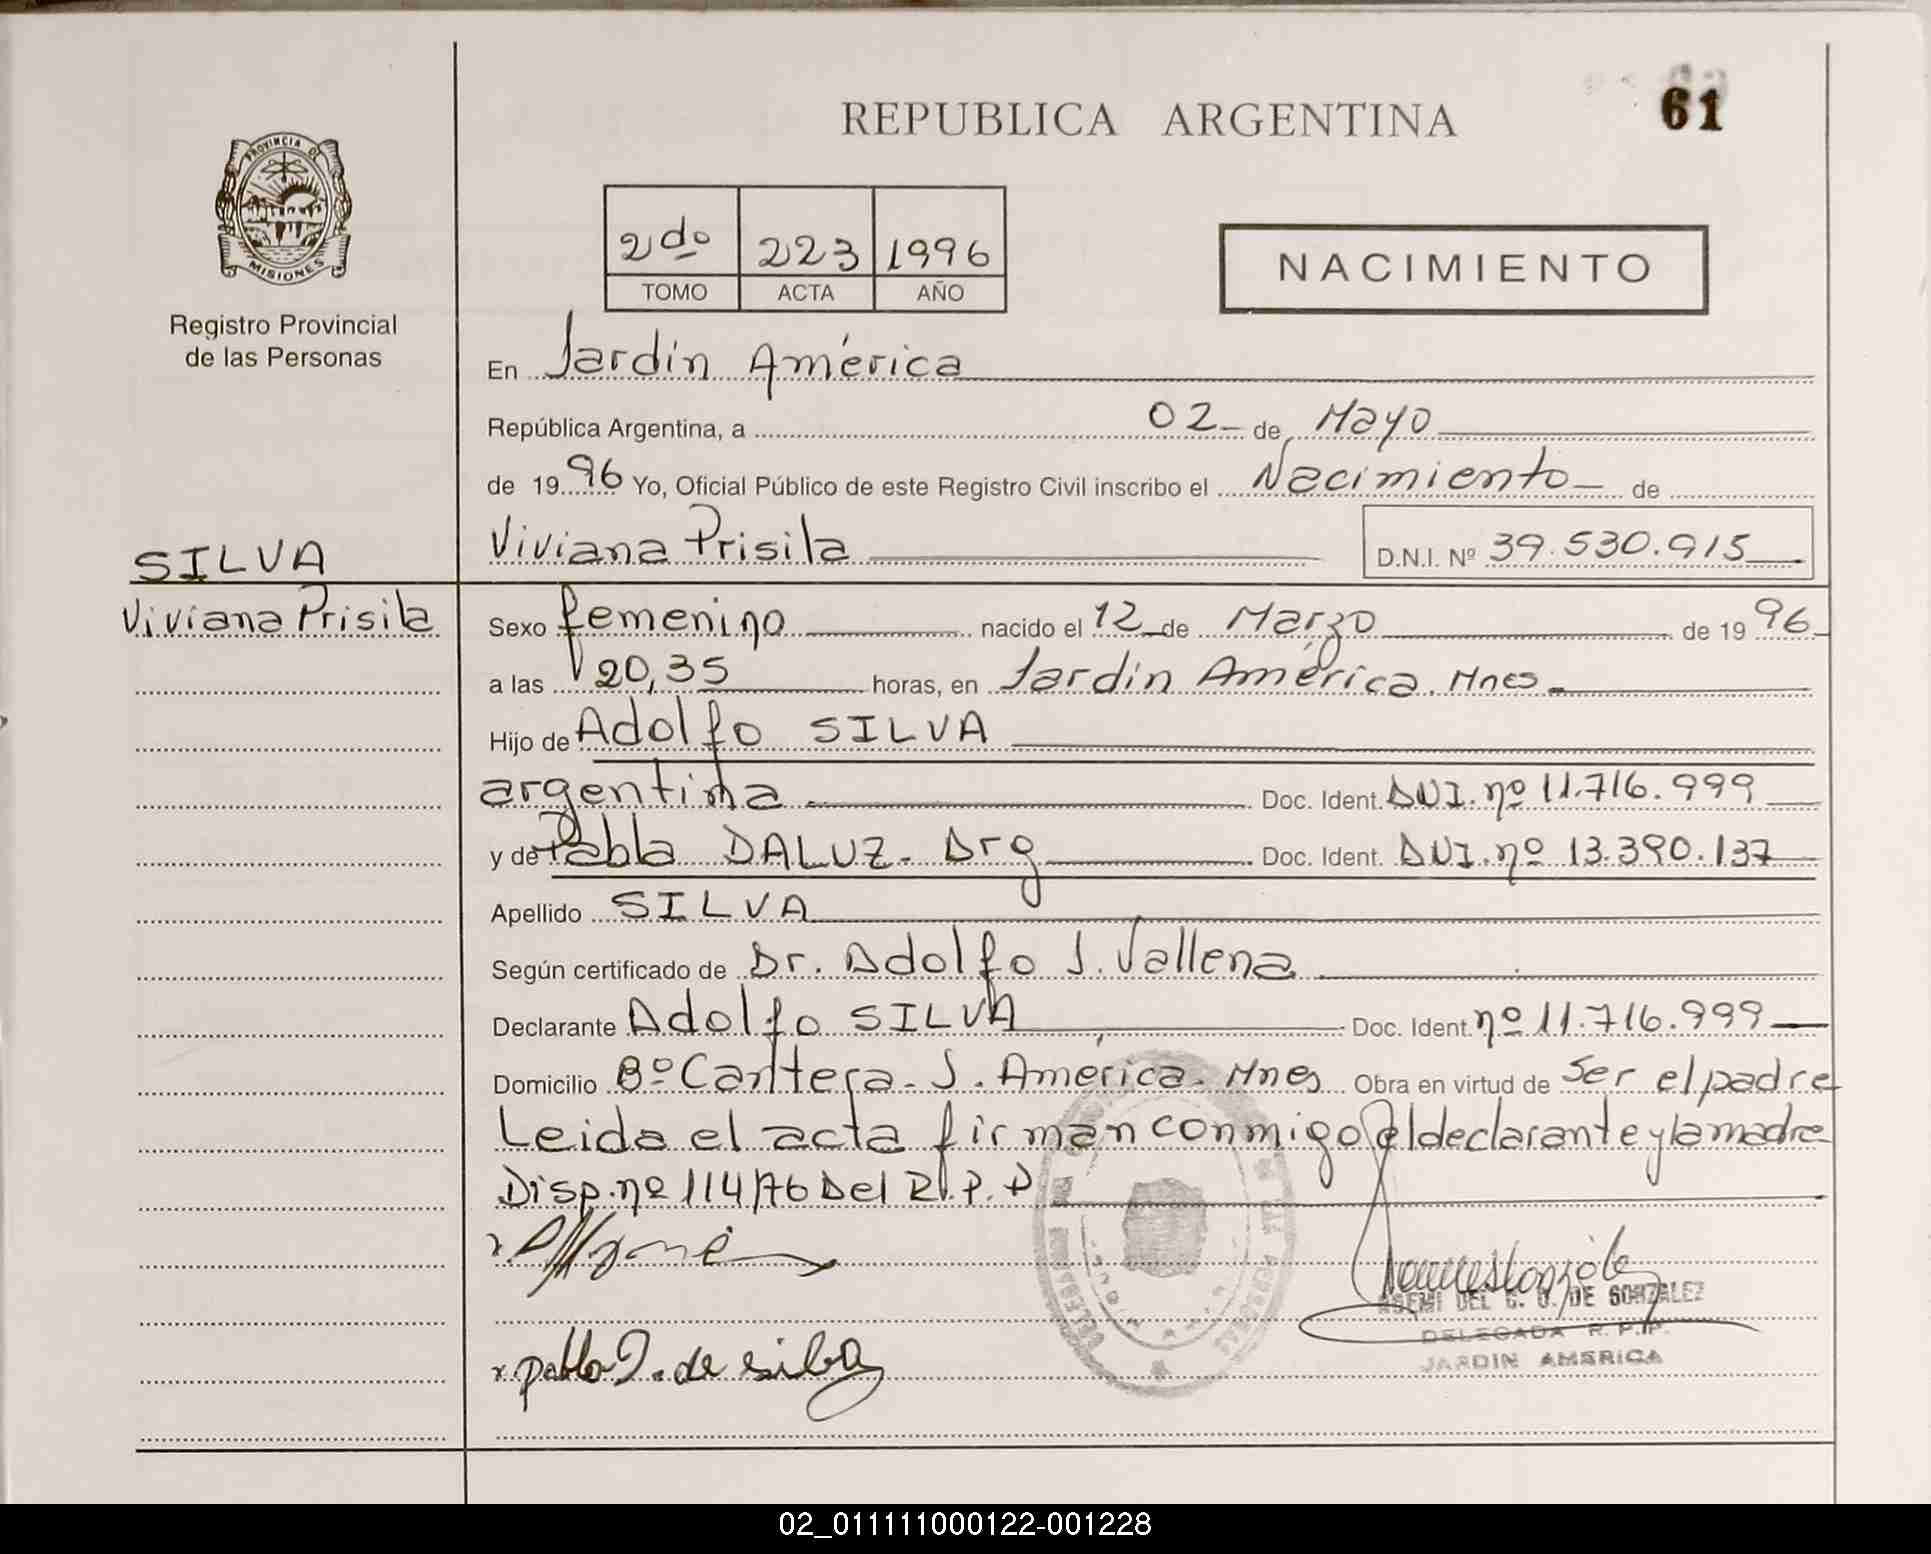 REPUBLICA ARGENTINA
61
PROVINCIA DE
MISIONES
Registro Provincial
de las Personas
2do 223 1996
TOMO ACTA AÑO
NACIMIENTO
En Jardín América
República Argentina, a 02 de Mayo
de 1996 Yo, Oficial Público de este Registro Civil inscribo el Nacimiento de
Viviana Prisila D.N.I. Nº 39.530.915
SILVA
Viviana Prisila
Sexo femenino nacido el 12 de Marzo de 1996
a las 20,35 horas, en Jardín América. Mnes
Hijo de Adolfo SILVA
argentina Doc. Ident. DNI. nº 11.716.999
y de Pabla DALUZ. Arg Doc. Ident. DNI. nº 13.390.137
Apellido SILVA
Según certificado de Dr. Adolfo J. Vallena
Declarante Adolfo SILVA Doc. Ident. nº 11.716.999
Domicilio Bº Cantera. J. América. Mnes Obra en virtud de Ser el padre
Leida el acta firman conmigo el declarante y la madre
Disp. nº 114/76 Del R.P.P
pabla D. de silva
NOEMI DEL C. O. DE GONZALEZ
DELEGADA R.P.P.
JARDIN AMERICA
02_011111000122-001228